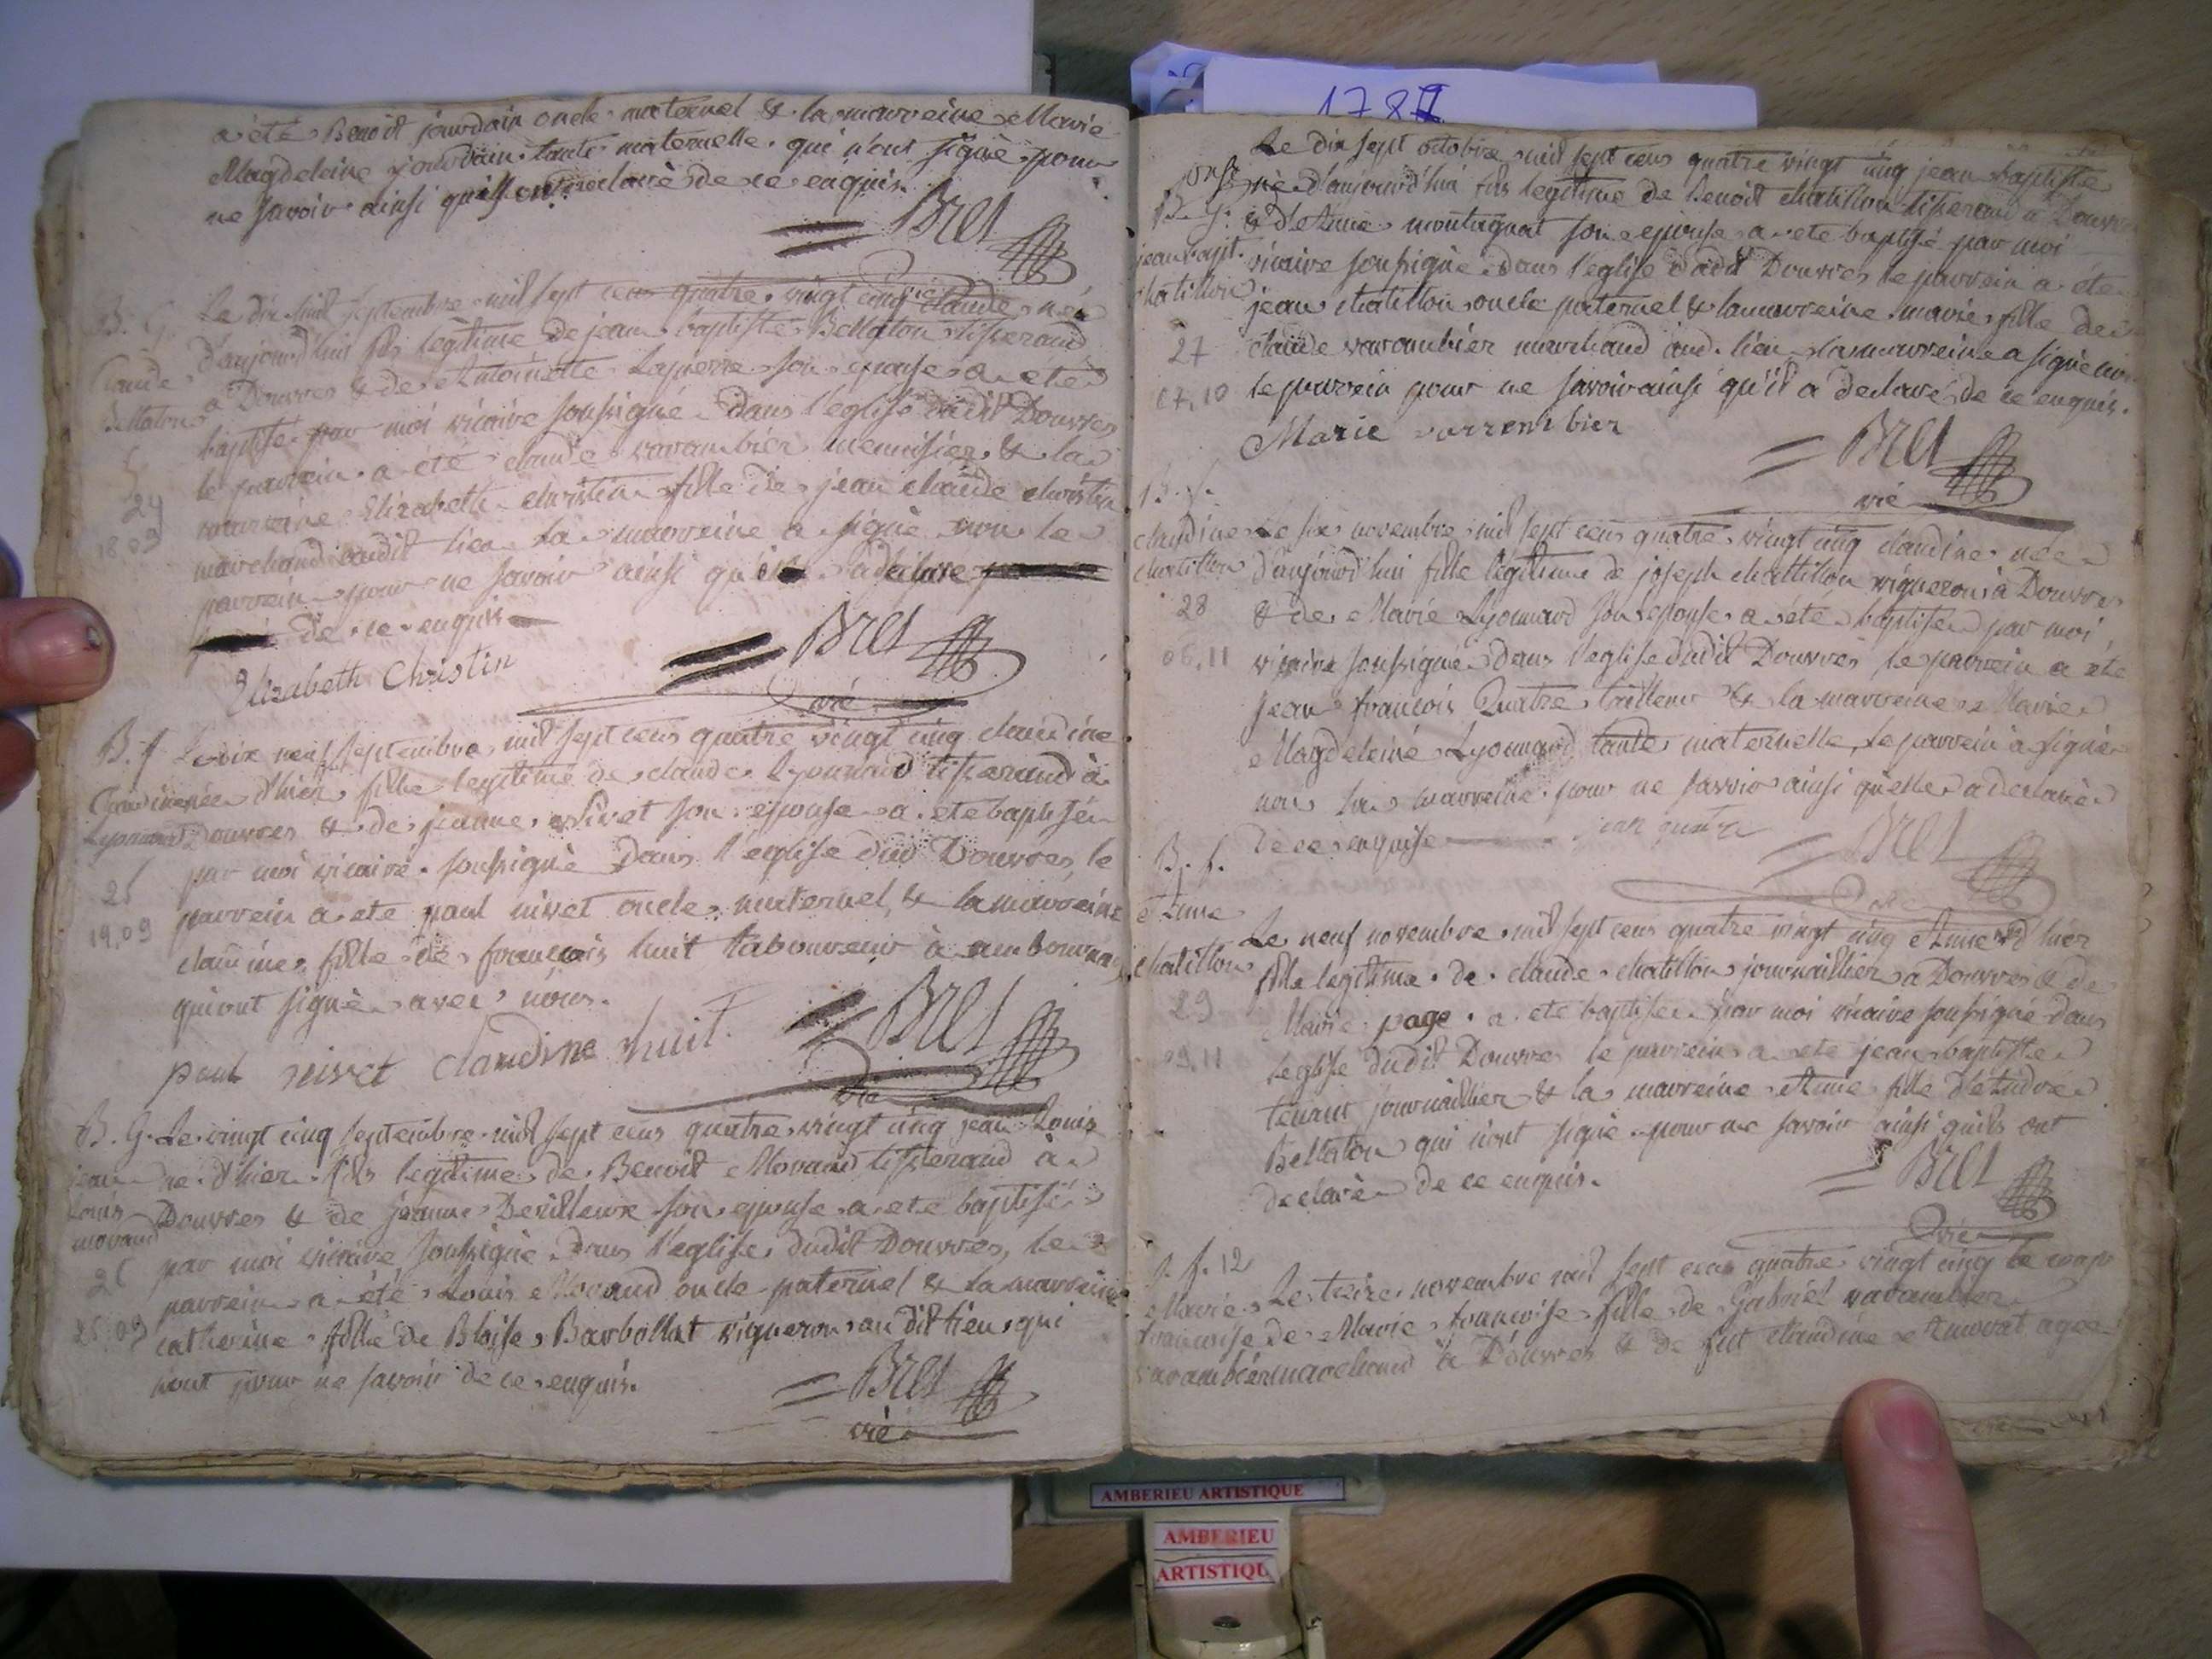 a été Benoit jourdain oncle maternel & la marreine Marie
Magdeleine jourdain tante maternelle qui n'ont signé pour
ne savoir ainsi qu'ils ont declaré de ce enquis.
= Bret
B. G.
Claude
Bellaton
24
18 09
Le dix huit septembre mil sept cens quatre vingt cinq Claude né
d'aujourd'hui fils legitime de jean baptiste Bellaton tisserand
a Douvres & de Antoinette Laperre son epouse a eté
baptisé par moi vicaire soussigné dans l'eglise dudit Douvres
le parrein a été claude varambier menuisier & la
marreine Elizabeth christin fille de jean claude christin
marchand audit lieu la marreine a signé non le
parrein pour ne savoir ainsi qu'il a déclaré
de ce enquis
Elizabeth Christin
= Bret
vic
B. f
Claudine
Lyonnard
25
19,09
Le dix neuf septembre mil sept cens quatre vingt cinq claudine
née d'hier fille legitime de claude Lyonnard tisserand à
Douvres & de jeanne nivet son epouse a ete baptisée
par moi vicaire soussigné dans l'eglise dud Douvres, le
parrein a ete paul nivet oncle maternel, & la marreine
claudine fille de francois huit taboureur à ambournay
qui ont signé avec nous.
paul nivet claudine huit
= Bret
vic
B. G.
jean
Louis
morand
26
25.09
Le vingt cinq septembre mil sept cens quatre vingt cinq jean Louis
né d'hier fils legitime de Benoit Morand tisserand à
Douvres & de jeanne Devilleuse son epouse a ete baptisé
par moi vicaire soussigné dans l'eglise dudit Douvres, le
parrein a été Louis Morand oncle paternel & la marreine
catherine fille de Blaise Barbollat vigneron au dit lieu qui
n'ont pour ne savoir de ce enquis.
= Bret
vic
178
B. G.
jean bapt.
chatillon
27
17,10
Le dix sept octobre mil sept cens quatre vingt cinq jean baptiste
né d'aujourd'hui fils legitime de Benoit chatillon tisserand a Douvres
& d'Anne montagnat son epouse a ete baptisé par moi
vicaire soussigné dans l'eglise dudit Douvres le parrein a été
jean chatillon oncle paternel & la marreine marie fille de
claude varambier marchand aud. lieu la marreine a signé non
le parrein pour ne savoir ainsi qu'il a declaré de ce enquis.
Marie varrembier
= Bret
vic
B. f.
claudine
chatillon
28
06,11
Le six novembre mil sept cens quatre vingt cinq claudine née
d'aujourd'hui fille legitime de joseph chattillon vigneron à Douvres
& de Marie Lyonnard son epouse a été baptisée par moi
vicaire soussigné dans l'eglise dudit Douvres le parrein a été
jean francois Quatre tailleur & la marreine Marie
Magdeleine Lyonnard tante maternelle, le parrein a signé
non la marreine pour ne savoir ainsi qu'elle a declaré
de ce enquise
jean quatre
= Bret
B. f.
Anne
chatillon
29
09,11
Le neuf novembre mil sept cens quatre vingt cinq Anne d'hier
fille legitime de claude chatillon journaillier a Douvres & de
Marie page a ete baptisée par moi vicaire soussigné dans
l'eglise dudit Douvres le parrein a ete jean baptiste
tenant journaillier & la marreine Anne fille d'André
Bellaton qui n'ont signé pour ne savoir ainsi qu'ils ont
declaré de ce enquis.
= Bret
vic
S. f. 12
Marie
francoise
varambier
Le treize novembre mil sept cens quatre vingt cinq le corps
de Marie francoise fille de Gabriel varambier
marchand à Douvres & de fut claudine agée
AMBERIEU ARTISTIQUE
AMBERIEU
ARTISTIQU